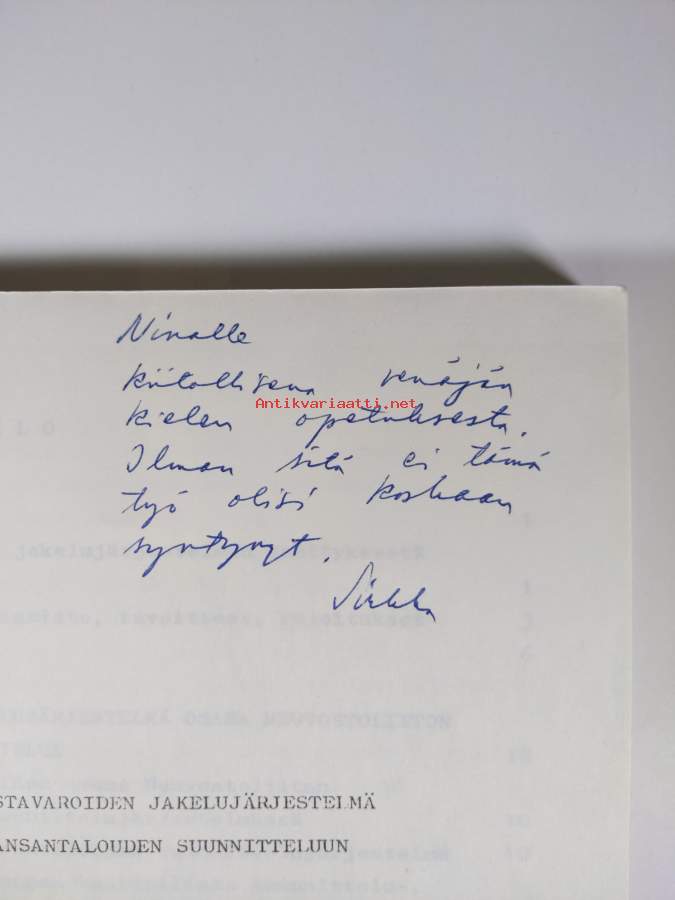 Ninalle
kiitollisena venäjän
Antikvariaatti.net
kielen opetuksesta.
Ilman sitä ei tämä
työ olisi koskaan
syntynyt.
Sirkka
STAVAROIDEN JAKELUJÄRJESTELMÄ
ANSANTALOUDEN SUUNNITTELUUN